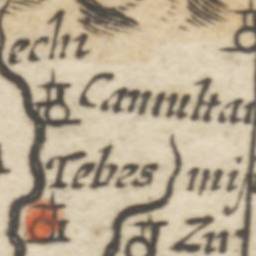 echi
Camulta
Tebes mis
Zu